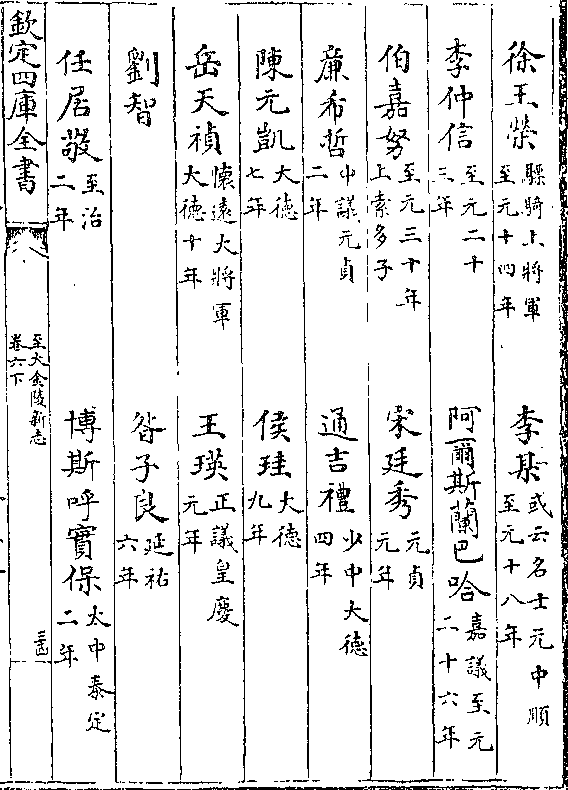 徐王榮驃騎上將軍至元十四年 李某或云名士元中順至元十八年
李仲信至元二十三年 阿爾斯蘭巴哈嘉議至元二十六年
伯嘉努至元三十年上索多子 宋廷秀元貞元年
廉希哲中議元貞二年 通吉禮少中大德四年
陳元凱大德七年 侯珪大德九年
岳天禎懷遠大將軍大德十年 王瑛正議皇慶元年
劉智 昝子良延祐六年
任居敬至治二年 博斯呼實保太中泰定二年
欽定四庫全書 至大金陵新志卷六下